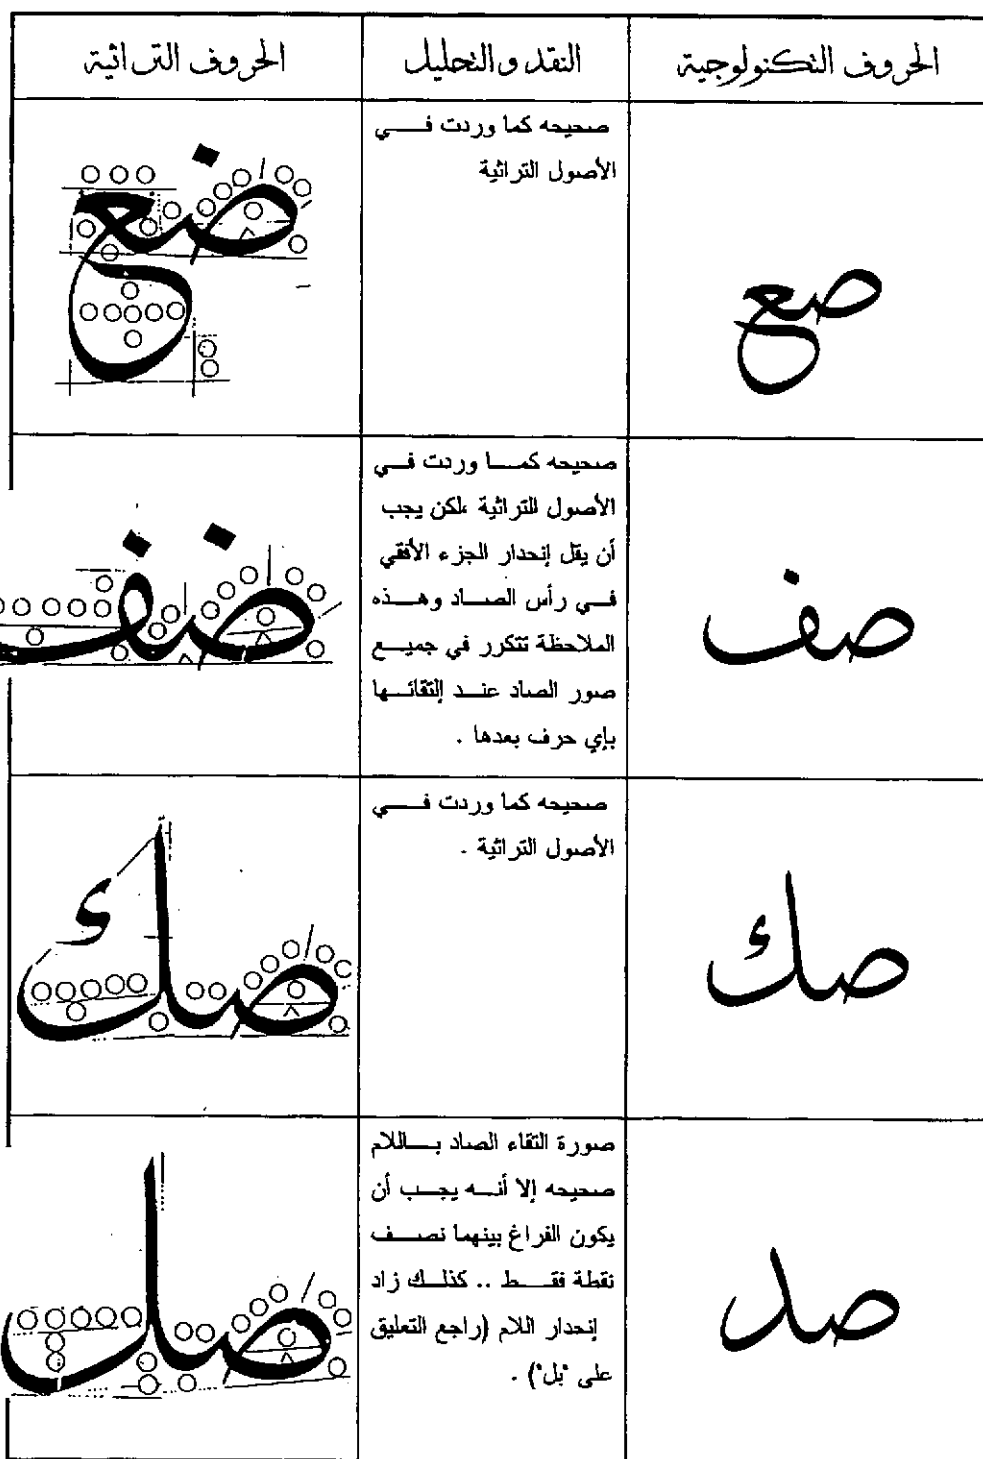 الحروف التكنولوجية
النقد والتحليل
الحروف التراثية
صع
صحيحه كما وردت فـــــي
الأصول التراثية
ضع
صف
صحيحه كمـــا وردت فـــي
الأصول التراثية ،لكن يجب
أن يقل إنحدار الجزء الأفقي
فـــي رأس الصـــاد وهـــذه
الملاحظة تتكرر في جميـــع
صور الصاد عنـــد إلتقائـــها
بإي حرف بعدها .
ضف
صك
صحيحه كما وردت فـــــي
الأصول التراثية .
صك
صد
صورة التقاء الصاد بـــاللام
صحيحه إلا أنـــه يجـــب أن
يكون الفراغ بينهما نصـــف
نقطة فقـــط .. كذلـــك زاد
إنحدار اللام (راجع التعليق
على "بل") .
صل